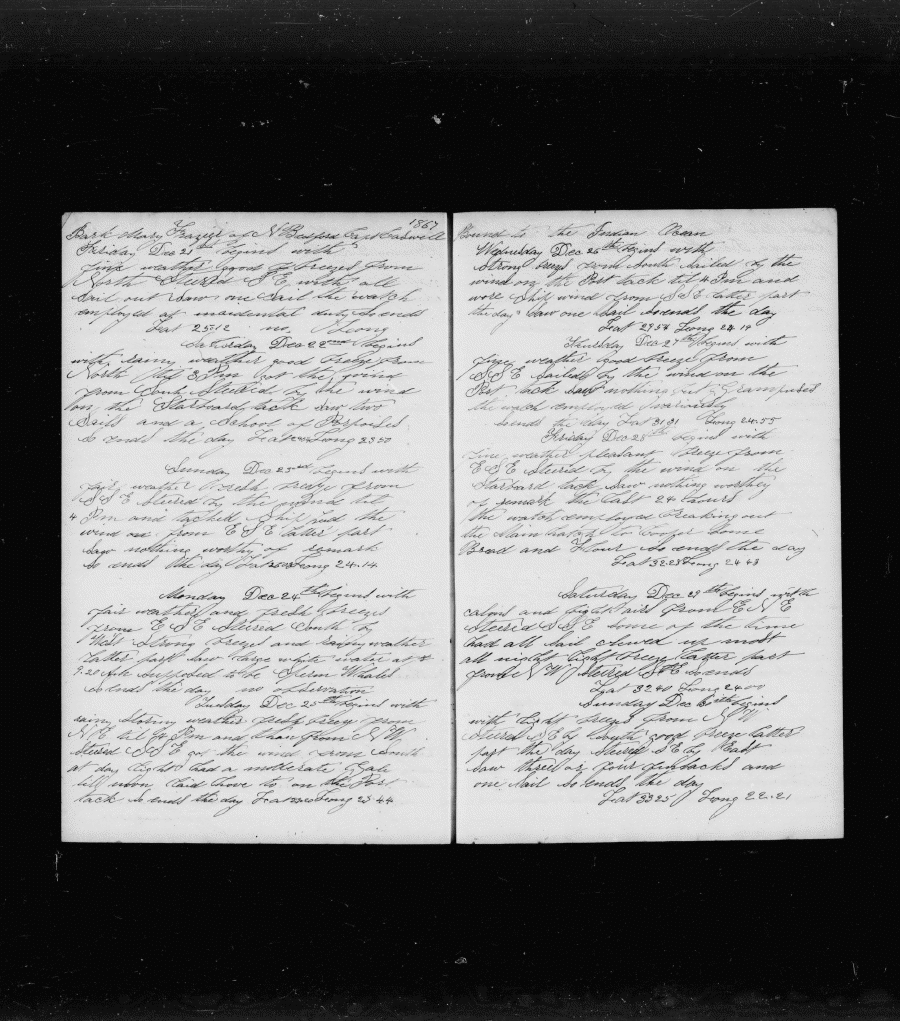 1867
Bark Mary Frazier of N Bedford
Friday Dec 21st begins with
fine weather good breeze from
North Steered S E with all
Sail out Saw one Sail the watch
employed at duty So ends
Lat 25.12 no Long
Saturday Dec 22nd begins
with rainy weather good breeze from
North At 3 Pm got the
from South Steered by the wind
on the Starboard tack saw two
Sails and a School of Porpoises
So ends the day Lat Long 23 50
Sunday Dec 23rd begins with
fine weather fresh breeze from
S S E Steered by the wind till
4 Pm and tacked Ship had the
wind from E S E latter part
Saw nothing worthy of remark
So ends the day Lat Long 24-14
Monday Dec 24th begins with
fair weather and fresh breeze
from E S E Steered South by
West Strong breeze and rainy weather
latter part Saw large white water at
9.20 supposed to be Sperm Whales
So ends the day no observation
Tuesday Dec 25th begins with
rainy Stormy weather fresh breeze from
N E till Pm and than from N W
Steered S S E got the wind from South
at day light had a moderate Gale
till noon laid hove to on the Port
tack So ends the day Lat Long 23 44
Bound to the Indian Ocean
Wednesday Dec 26th begins with
Strong breeze from South Sailed by the
wind on the Port tack till 4 Pm and
wore Ship wind from S S E latter part
the day saw one Sail So ends the day
Lat 29 54 Long 24 14
Thursday Dec 27th begins with
fine weather good breeze from
S S E Sailed by the wind on the
Port tack saw nothing but Grampuses
the watch employed variously
So ends the day Lat 31 31 Long 24.55
Friday Dec 28th begins with
Fine weather pleasant breeze from
E S E Steered by the wind on the
Starboard tack saw nothing worthy
of remark the last 24 hours
the watch employed breaking out
the Main hatch to Cooper Some
Bread and Flour So ends the day
Lat 32 28 Long 24 48
Saturday Dec 29th begins with
calms and light airs from E N E
Steered S S E some of the time
had all Sail clewed up most
all night light breeze latter part
from N W Steered S E So ends
Lat 32 40 Long 24 00
Sunday Dec begins
with light breeze from N W
Steered S E by South good breeze latter
part the day Steered S E by East
Saw three or four finbacks and
one Sail So ends the day
Lat 33 25 Long 22-21